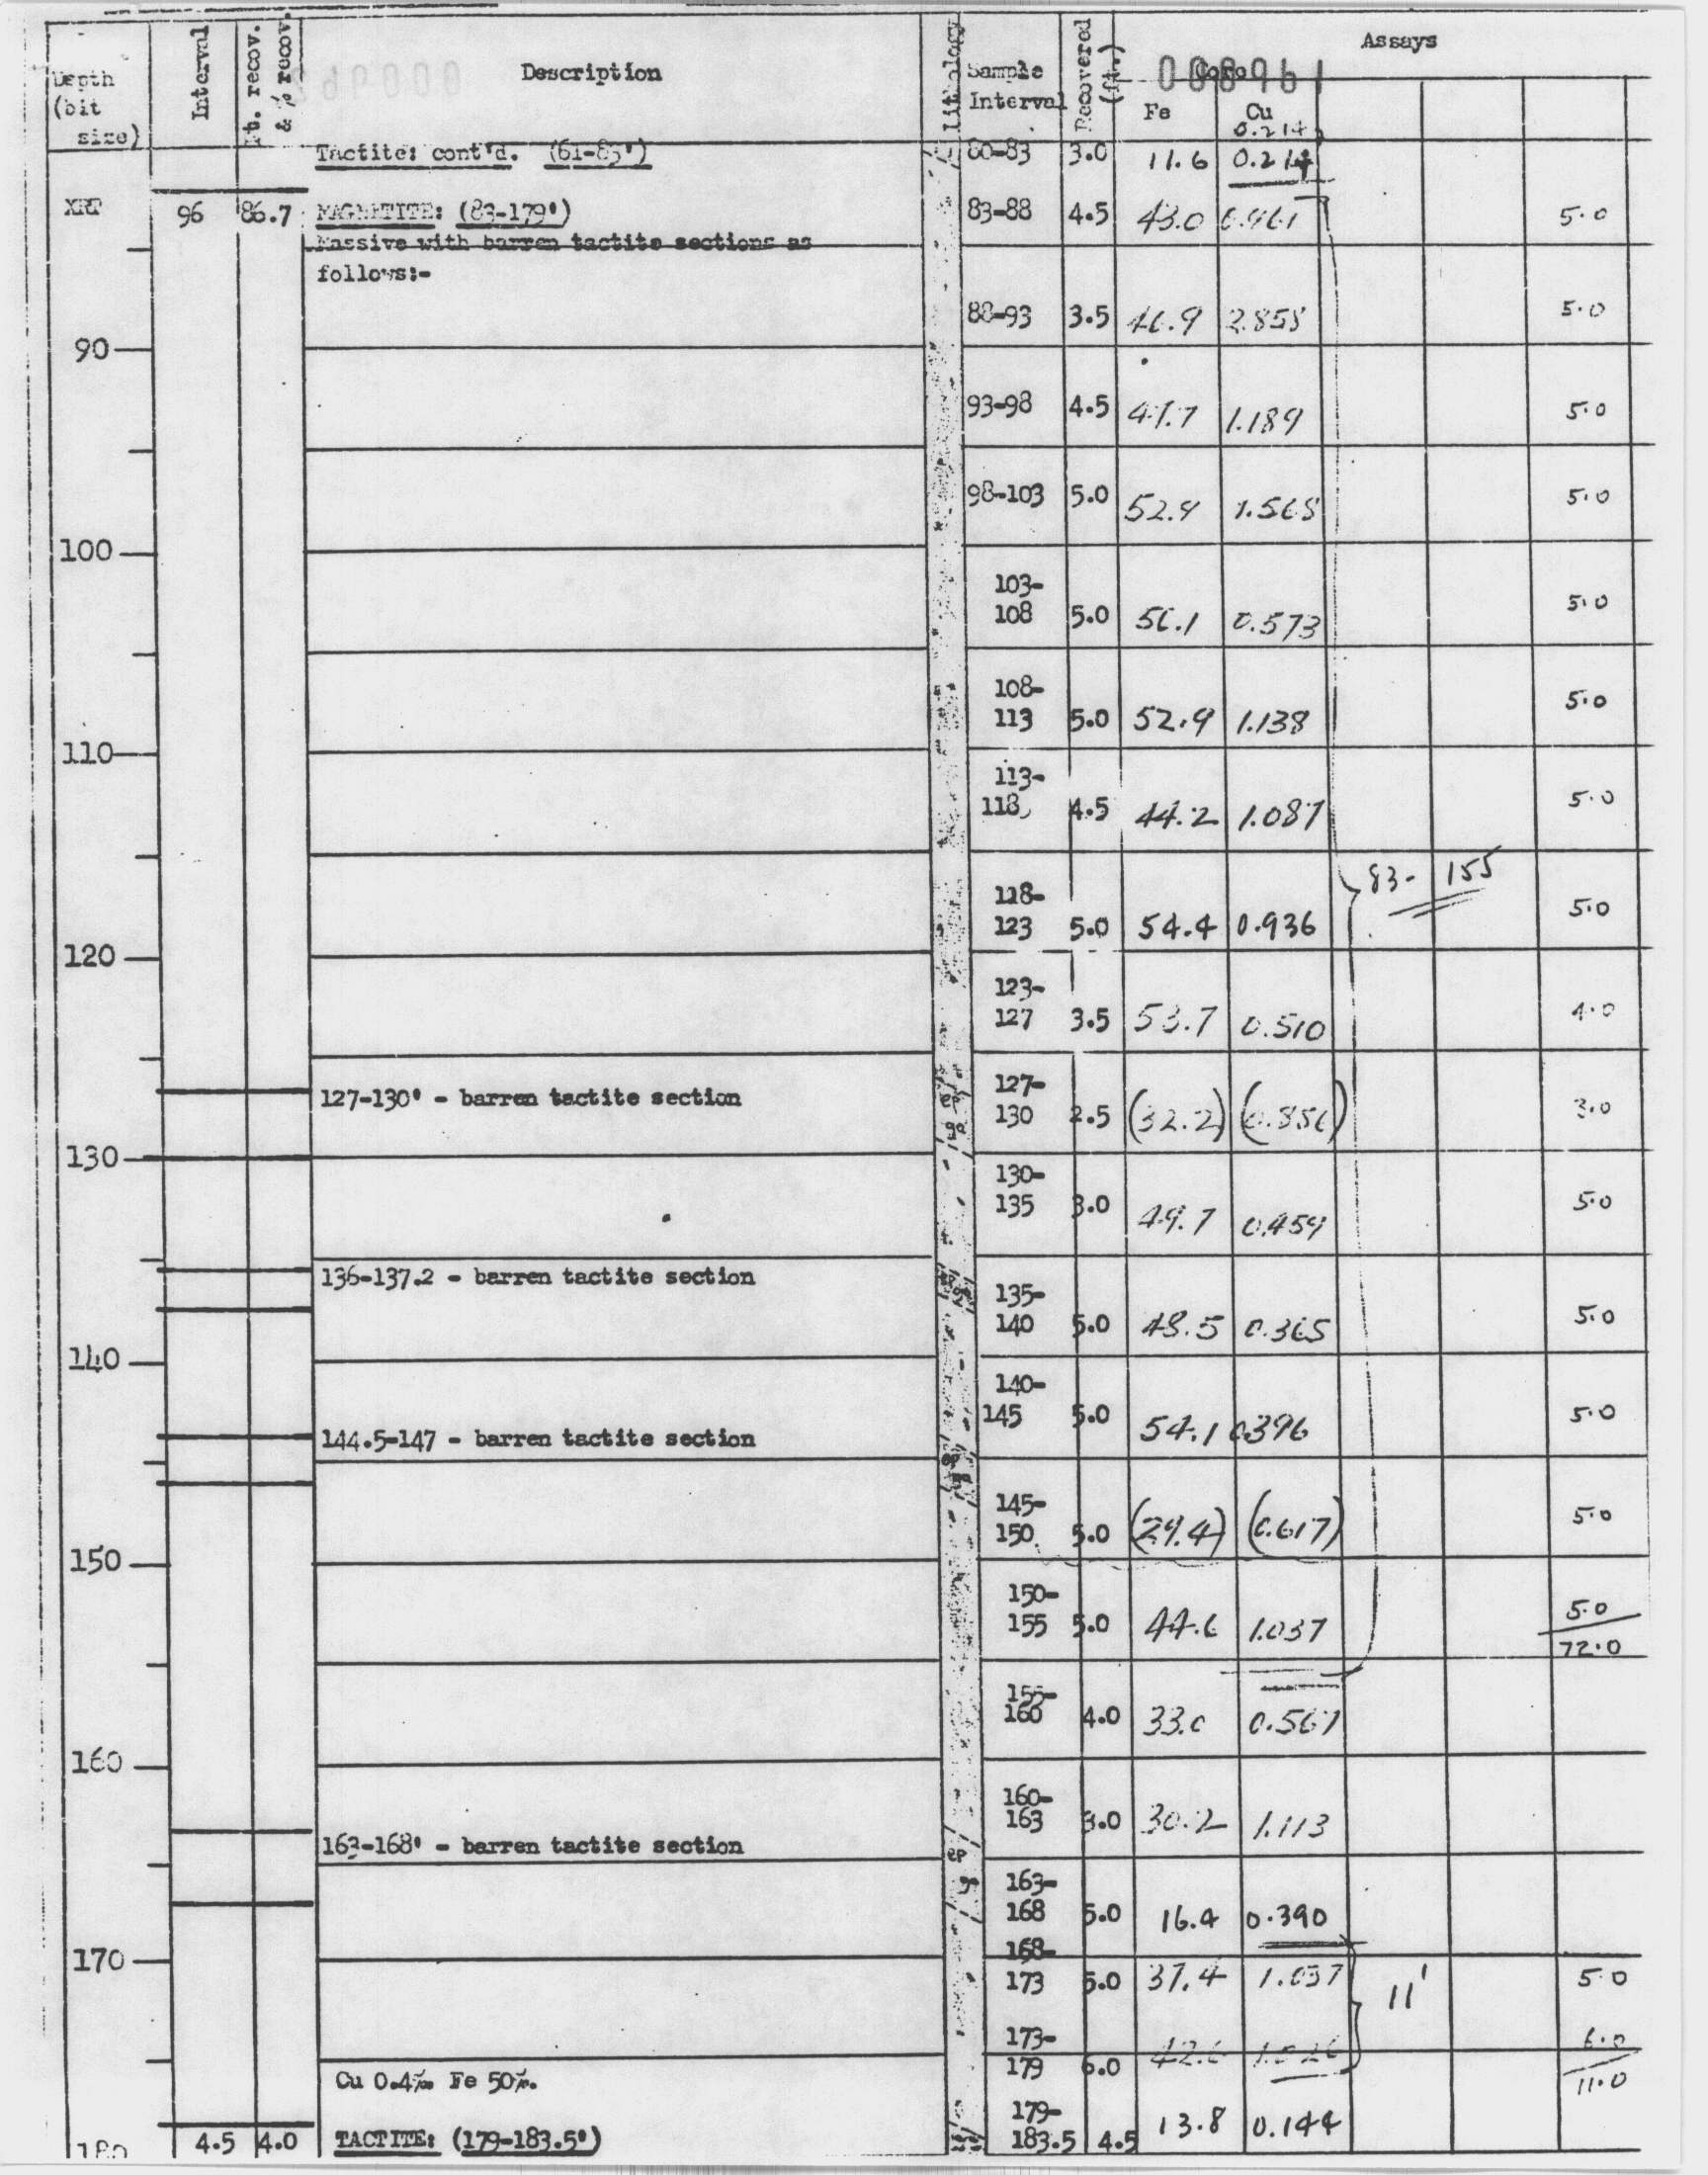 Assays
Depth
(bit
size)
Interval
Ft. recov.
& % recov.
Description
Lithology
Sample
Interval
Recovered
(ft.)
Core
Fe Cu
0.214
Tactite: cont'd. (61-83') 80-83 3.0 11.6 0.214
XRP 96 86.7 MAGNETITE: (83-179') 83-88 4.5 43.0 0.461 5.0
Massive with barren tactite sections as
follows:-
88-93 3.5 46.9 2.858 5.0
90
93-98 4.5 47.7 1.189 5.0
98-103 5.0 52.9 1.568 5.0
100
103-
108 5.0 56.1 0.573 5.0
108-
113 5.0 52.9 1.138 5.0
110
113-
118 4.5 44.2 1.087 5.0
83- 155
118-
123 5.0 54.4 0.936 5.0
120
123-
127 3.5 53.7 0.510 4.0
127-130' - barren tactite section
127-
130 2.5 (32.2) (0.856) 3.0
130
130-
135 3.0 49.7 0.459 5.0
136-137.2 - barren tactite section
135-
140 5.0 48.5 0.365 5.0
140
140-
145 5.0 54.1 0.396 5.0
144.5-147 - barren tactite section
145-
150 5.0 (29.4) (0.617) 5.0
150
150-
155 5.0 44.6 1.037 5.0
72.0
155-
160 4.0 33.0 0.567
160
160-
163 3.0 30.2 1.113
163-168' - barren tactite section
163-
168 5.0 16.4 0.390
168-
170
173 5.0 37.4 1.037 11' 5.0
173-
179 6.0 42.6 6.0
11.0
Cu 0.4% Fe 50%.
179-
180 4.5 4.0 TACTITE: (179-183.5') 183.5 4.5 13.8 0.144